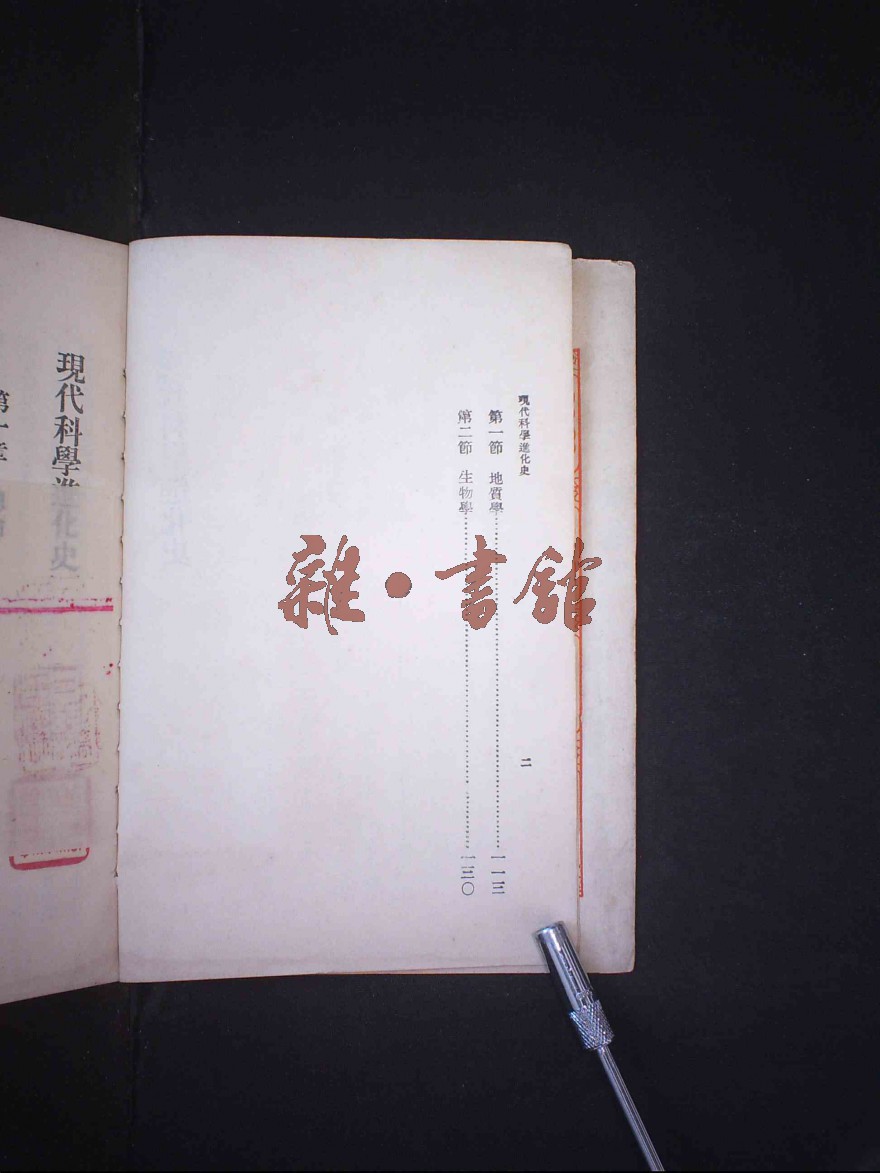 現代科學進化史
二
第一節　地質學……一一三
第二節　生物學……一三〇
現代科學進化史
雜·書館